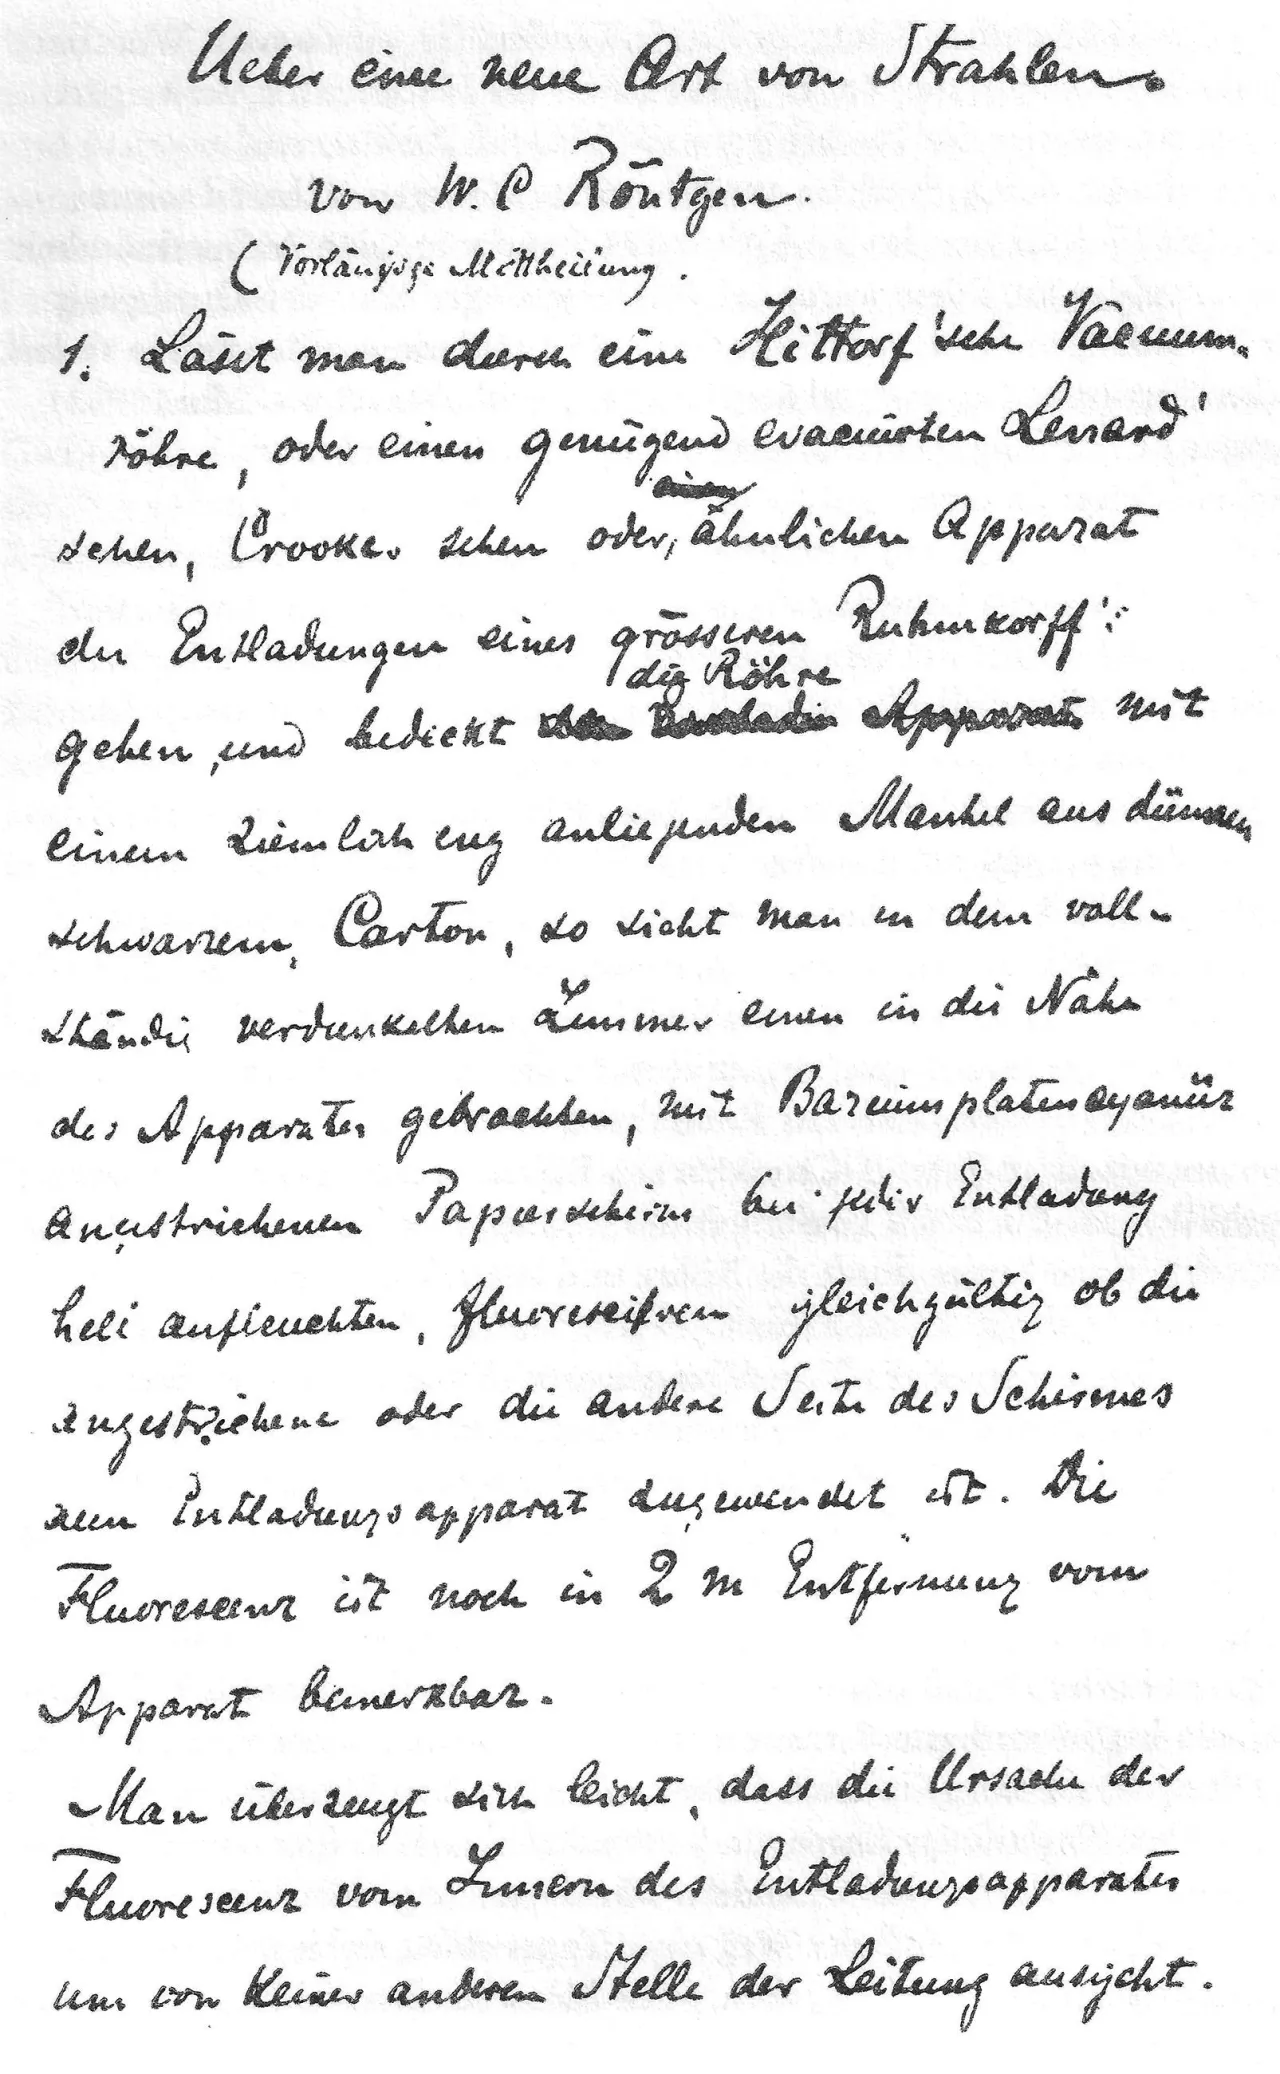 Ueber eine neue Art von Strahlen.
von W. C Röntgen.
(Vorläufige Mittheilung.
1. Lässt man durch eine Hittorf'sche Vacuum-
röhre, oder einen genügend evacuirten Lenard'
schen, Crookes schen oder ähnlichen Apparat
die Entladungen eines grösseren Ruhmkorff's
die Röhre
gehen, und bedeckt Apparat mit
einem ziemlich eng anliegenden Mantel aus dünnem
schwarzem, Carton, so sieht man in dem voll-
ständig verdunkelten Zimmer einen in die Nähe
des Apparates gebrachten, mit Bariumplatincyanür
angestrichenen Papierschirm bei jeder Entladung
hell aufleuchten, fluoresciren gleichgültig ob die
angestrichene oder die andere Seite des Schirmes
dem Entladungsapparat zugewendet ist. Die
Fluorescenz ist noch in 2 m Entfernung vom
Apparat bemerkbar.
Man überzeugt sich leicht, dass die Ursache der
Fluorescenz vom Innern des Entladungsapparates
und von keiner anderen Stelle der Leitung ausgeht.